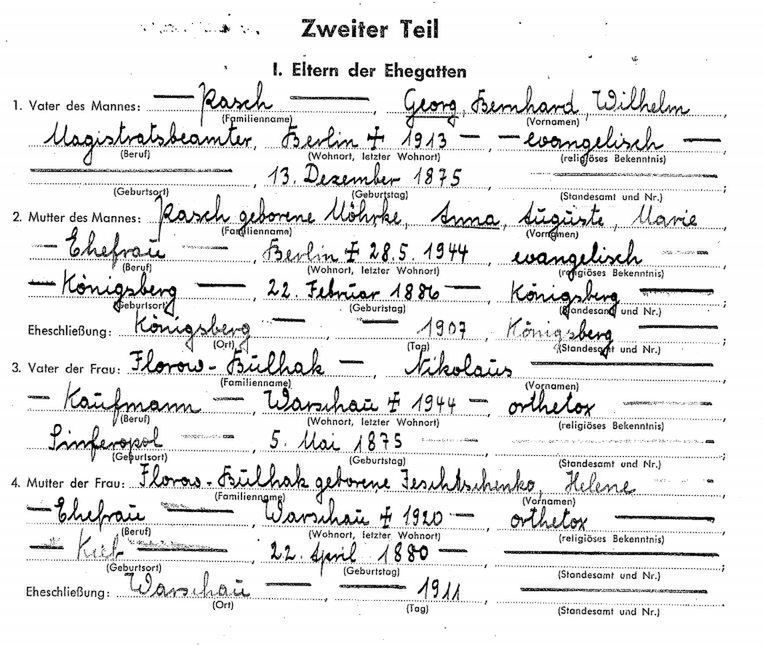 Zweiter Teil
I. Eltern der Ehegatten
1. Vater des Mannes: — Rasch —, Georg, Bernhard, Wilhelm
(Familienname) (Vornamen)
Magistratsbeamter, Berlin + 1913 —, — evangelisch —
(Beruf) (Wohnort, letzter Wohnort) (religiöses Bekenntnis)
—, 13. Dezember 1875
(Geburtsort) (Geburtstag) (Standesamt und Nr.)
2. Mutter des Mannes: Rasch geborene Möhrke, Anna, Auguste, Marie
(Familienname) (Vornamen)
— Ehefrau —, Berlin + 28.5. 1944, evangelisch —
(Beruf) (Wohnort, letzter Wohnort) (religiöses Bekenntnis)
— Königsberg —, 22. Februar 1886 —, Königsberg —
(Geburtsort) (Geburtstag) (Standesamt und Nr.)
Eheschließung: Königsberg —, — 1907, Königsberg —
(Ort) (Tag) (Standesamt und Nr.)
3. Vater der Frau: Florow-Bulhak —, Nikolaus —
(Familienname) (Vornamen)
— Kaufmann —, Warschau + 1944 —, orthetox —
(Beruf) (Wohnort, letzter Wohnort) (religiöses Bekenntnis)
Simferopol —, 5. Mai 1875 —, —
(Geburtsort) (Geburtstag) (Standesamt und Nr.)
4. Mutter der Frau: Florow-Bulhak geborene Jeschtschinko, Helene —
(Familienname) (Vornamen)
— Ehefrau —, Warschau + 1920 —, orthetox —
(Beruf) (Wohnort, letzter Wohnort) (religiöses Bekenntnis)
— Kiel —, 22. April 1880 —, —
(Geburtsort) (Geburtstag) (Standesamt und Nr.)
Eheschließung: Warschau —, — 1911, —
(Ort) (Tag) (Standesamt und Nr.)